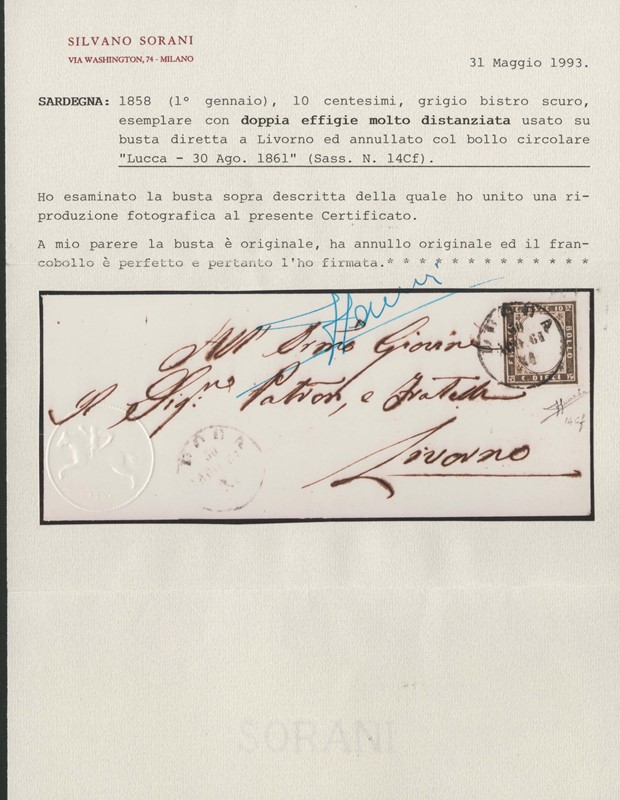 SILVANO SORANI
VIA WASHINGTON, 74 - MILANO
31 Maggio 1993.
SARDEGNA: 1858 (1° gennaio), 10 centesimi, grigio bistro scuro,
esemplare con doppia effigie molto distanziata usato su
busta diretta a Livorno ed annullato col bollo circolare
"Lucca - 30 Ago. 1861" (Sass. N. 14Cf).
Ho esaminato la busta sopra descritta della quale ho unito una ri-
produzione fotografica al presente Certificato.
A mio parere la busta è originale, ha annullo originale ed il fran-
cobollo è perfetto e pertanto l'ho firmata.* * * * * * * * * * * * *
BOLLO
C. DIECI
e Fratelli
Livorno
14Cf
SORANI